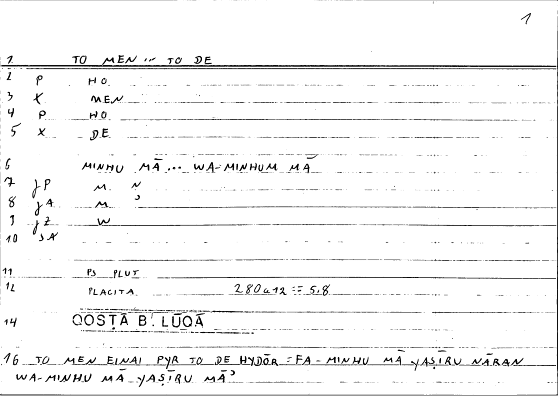 1
1 TO MEN ... TO DE
2 P HO
3 X MEN
4 P HO
5 X DE
6 MINHU MĀ ... WA-MINHUM MĀ
7 JP M. N
8 JA M. ʾ
9 JZ W
10 JA
11 PS PLUT
12 PLACITA 280a12 = 5,8
14 QOSṬĀ B. LŪQĀ
16 TO MEN EINAI PYR TO DE HYDŌR = FA-MINHU MĀ YAṢĪRU NĀRAN
WA-MINHU MĀ YAṢĪRU MĀʾ